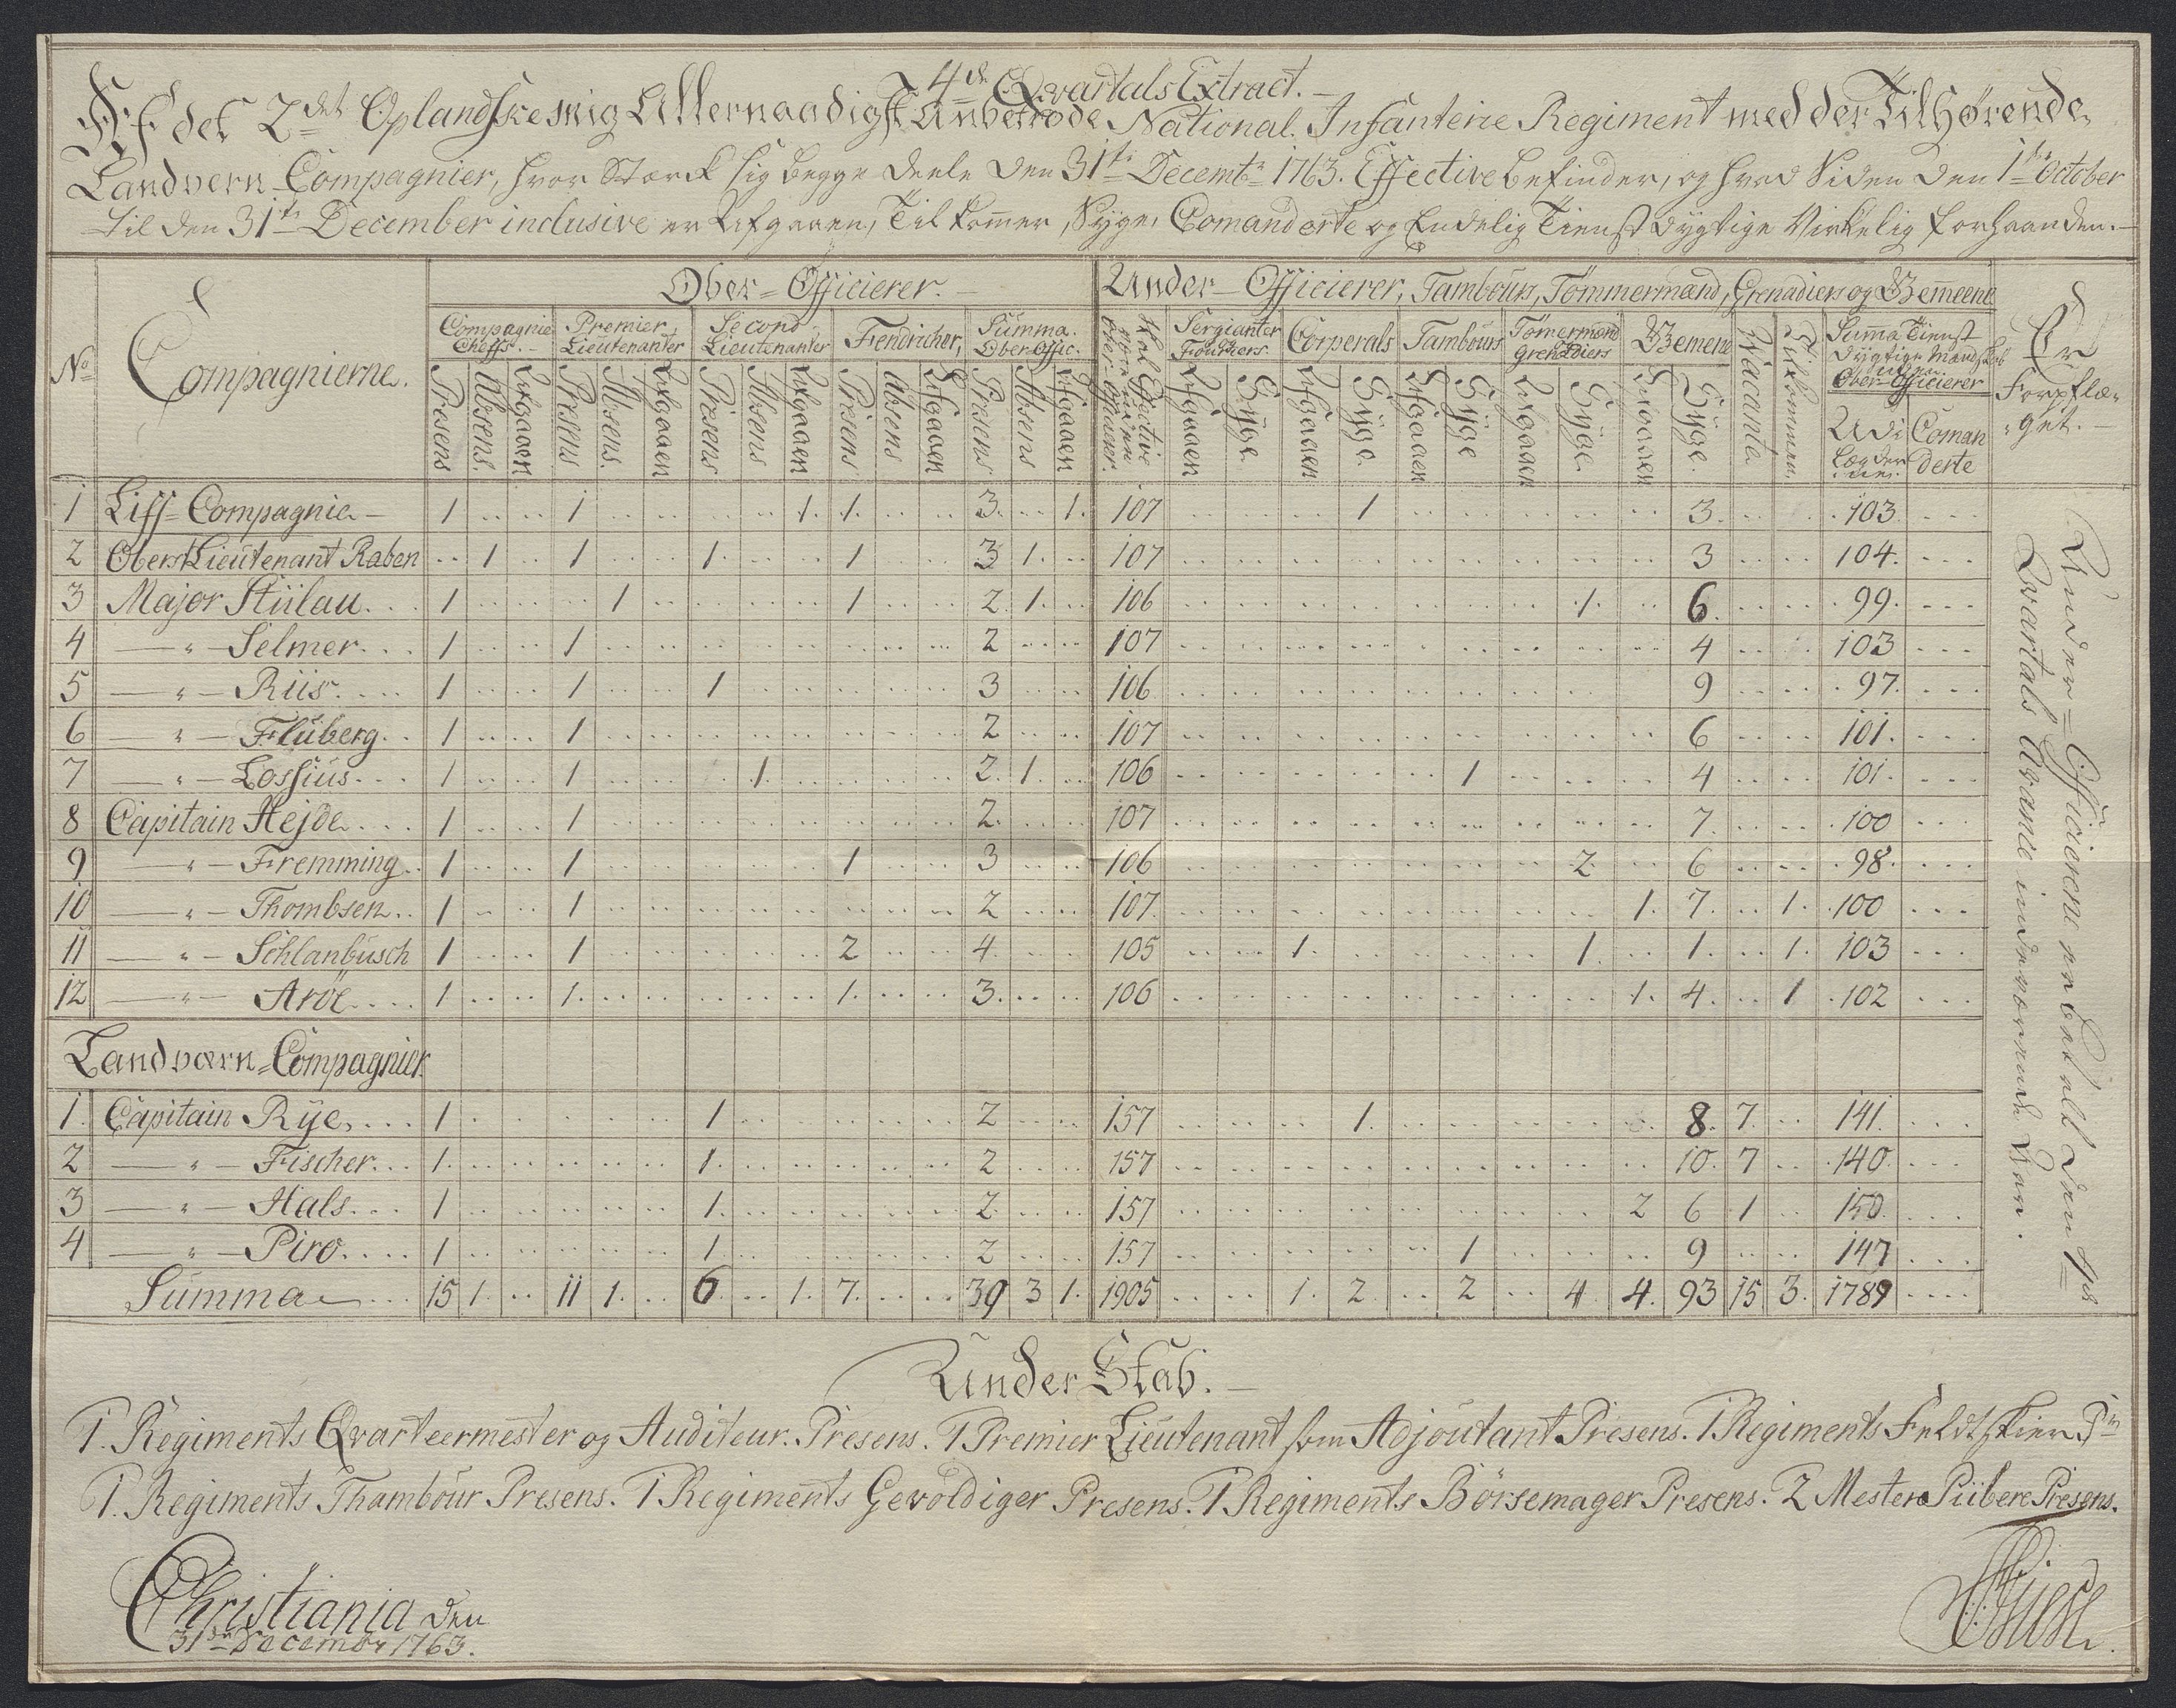 4de Qvartals Extract.
Af det 2det Oplandske mig Allernaadigst Anbetrode National Infanterie Regiment med der Tilhørende
Landvern Compagnier, hvor Stærck sig begge Deele den 31te Decembr 1763. Effective befinder, og hvad Siden den 1te October
til den 31te December inclusive er Afgaaen, Til kommer, Syge, Comanderte og Endelig Tienst dygtige Virkelig forhaanden.
Ober-Officierer. Under-Officierer, Tambours, Tømmermænd, Grenadiers og Gemeene
No Compagnierne. Compagnie Cheffs. Premier Lieutenanter Second Lieutenanter Fendricher, Summa. Ober-Offic. Skal Effective være uden Ober-Officierer. Sergianter Fouriers Corporals Tambours Tømermænd og Grenadiers Gemene Vacante Tilkommen Suma Tienst dygtige Mandskab uden Ober-Officierer Er Forpflæ-
get.
Presens Absens. Afgaaen Presens Absens. Afgaaen Presens Absens Afgaaen Presens Absens Afgaaen Presens Absens Afgaaen Afgaaen Syge Afgaaen Syge Afgaaen Syge Afgaaen Syge Afgaaen Syge Udi Lægderne Coman derte
1 Liff-Compagnie 1 1 1 1 3 1 107 1 3 103
2 Oberst Lieutenant Raben 1 1 1 1 3 1 107 3 104
3 Major Stülau 1 1 1 2 1 106 1 6 99
4 — " — Selmer 1 1 2 107 4 103
5 — " — Riis 1 1 1 3 106 9 97
6 — " — Fluberg 1 1 2 107 6 101
7 — " — Lossius 1 1 1 2 1 106 1 4 101
8 Capitain Hejde 1 1 2 107 7 100
9 — " — Fremming 1 1 1 3 106 2 6 98
10 — " — Thombsen 1 1 2 107 1 7 1 100
11 — " — Schlanbusch 1 1 2 4 105 1 1 1 1 103
12 — " — Aroe 1 1 1 3 106 1 4 1 102
Landværn-Compagnier
1 Capitain Rye 1 1 2 157 1 8 7 141
2 — " — Fischer 1 1 2 157 10 7 140
3 — " — Hals 1 1 2 157 2 6 1 150
4 — " — Piro 1 1 2 157 1 9 147
Summa 15 1 11 1 6 1 7 39 3 1 1905 1 2 2 4 4 93 15 3 1789
Under-Officierene er betalt den 4de
Qvartals Avance indeværende Aar.
Under Stab.
1. Regiments Qvarteermester og Auditeur. Presens. 1 Premier Lieutenant som Adjoutant Presens. 1 Regiments Feldtskier Ps
1. Regiments Thambour Presens. 1 Regiments Gevoldiger Presens. 1 Regiments Børsemager Presens. 2 Mester Piibere Presens.
Christiania den
31te December 1763.